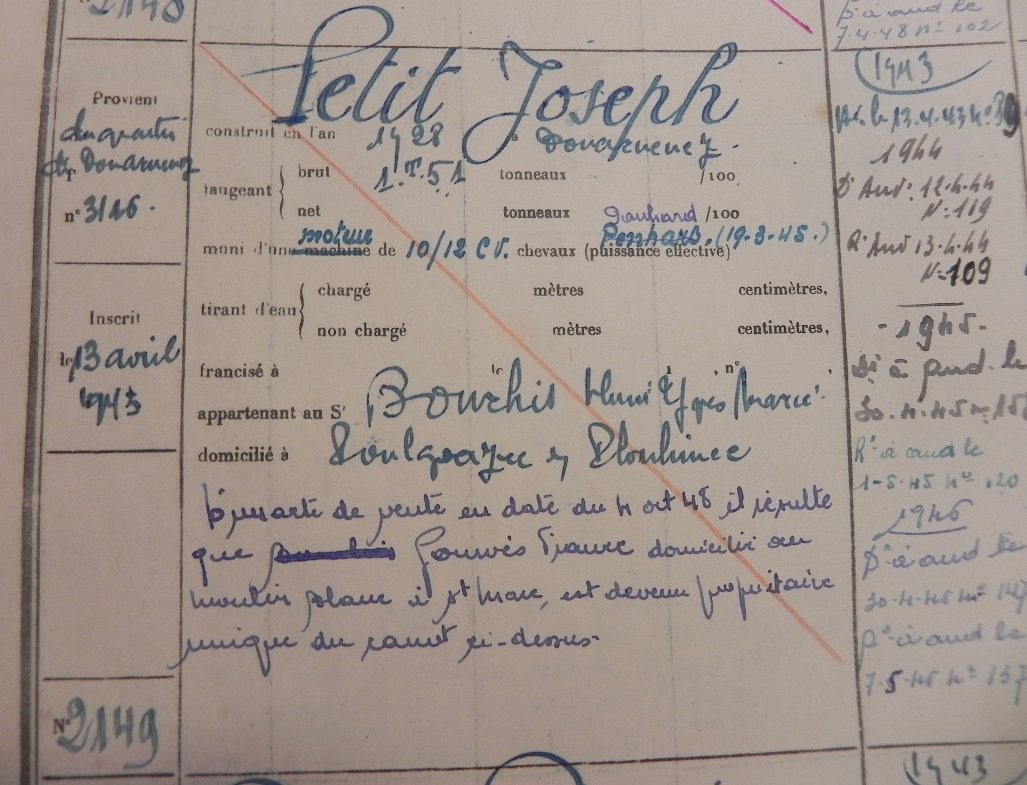 2148
à aud le
7-4-48 N° 102
Petit Joseph
Provient
du quartier
de Douarnenez
n° 3126.
construit en l'an 1928 à Douarnenez.
jaugeant
brut 1.T.51 tonneaux /100
net tonneaux /100
moteur
Penhars. (19-3-45.)
muni d'une machine de 10/12 CV. chevaux (puissance effective)
tirant d'eau
chargé mètres centimètres,
non chargé mètres centimètres,
Inscrit
le 13 avril
1943
francisé à le , n° ,
appartenant au Sr Bourhis Henri Yves Marie.
domicilié à Plouhinec
D'un acte de vente en date du 4 oct 48 il résulte
que Gouvès France domicilié au
moulin blanc à St Marc, est devenu propriétaire
unique du canot ci-dessus-
N° 2149
1943
le 13.4.43 n°
1944
Dt Aud: 12-4-44
N: 119
Rt Aud 13-4-44
N: 109
- 1945.
Dt à aud. le
30-4-45 n°
Rt à aud le
1-5-45 N° 120
1946
Dt à aud le
30-4-46 N°
Rt à aud le
7-5-46 N° 137
1943